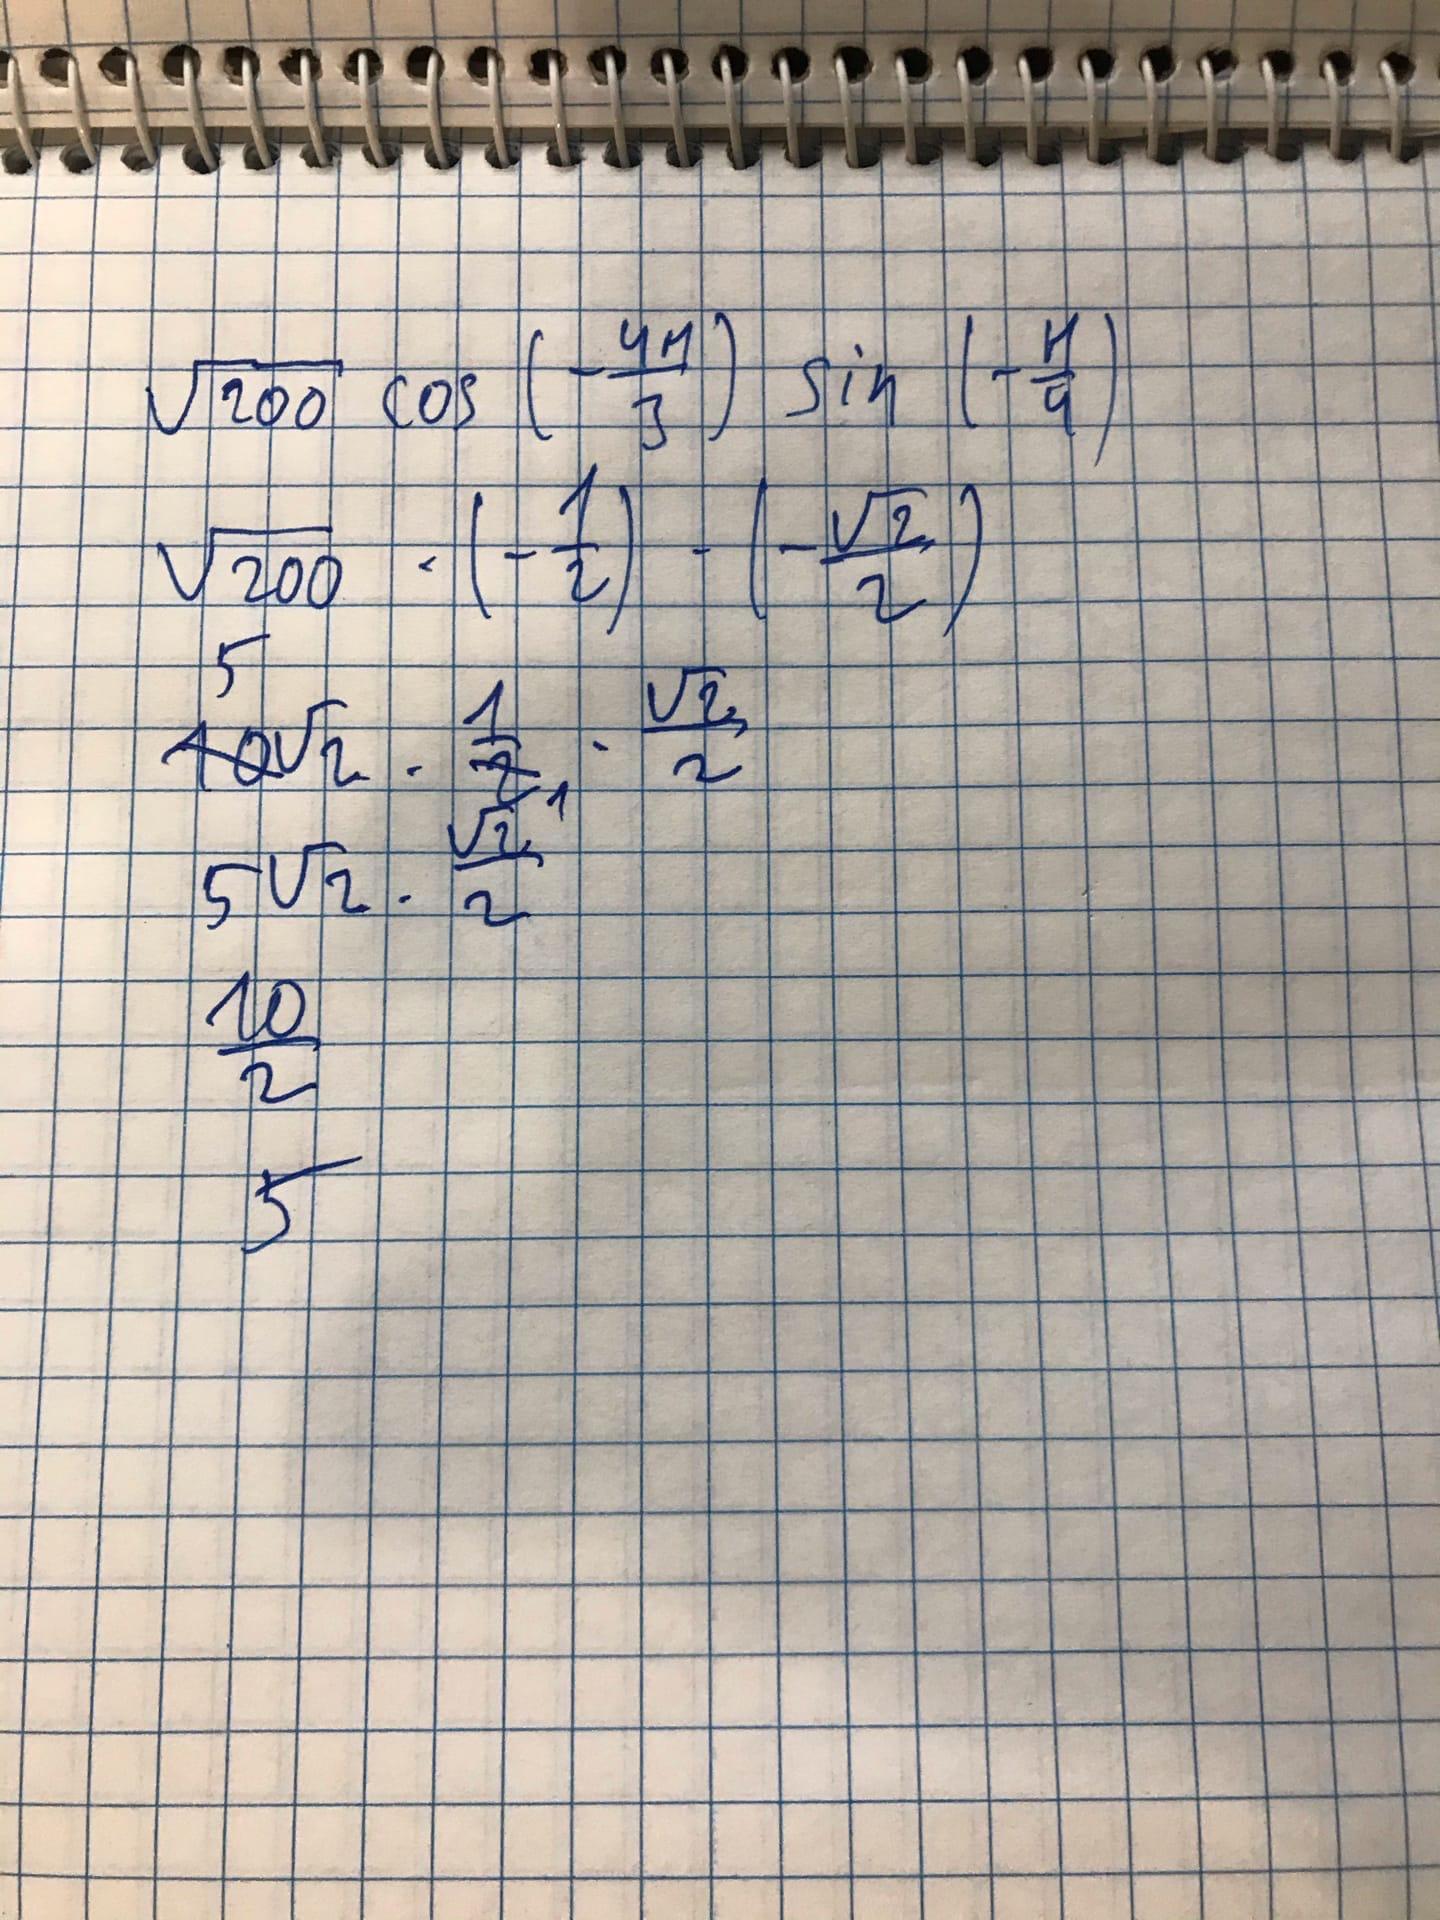 √200 cos (-4π/3) sin (-π/4)
√200 · (-1/2) · (-√2/2)
5
10√2 · 1/2 · √2/2
1
5√2 · √2/2
10/2
5